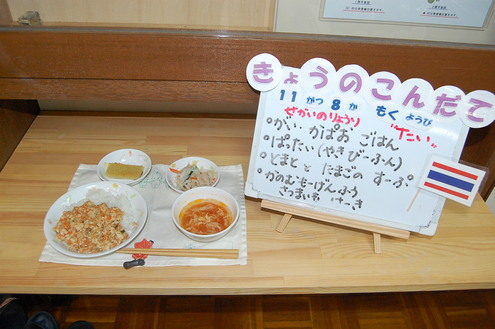 きょうのこんだて
11 がつ 8 か もく ようび
せかいのりょうり "たい"
・がい がぱお ごはん
・ぱったい(やきびーふん)
・とまと と たまごの すーぷ
・かのむもーげんふう
さつまいも けーき